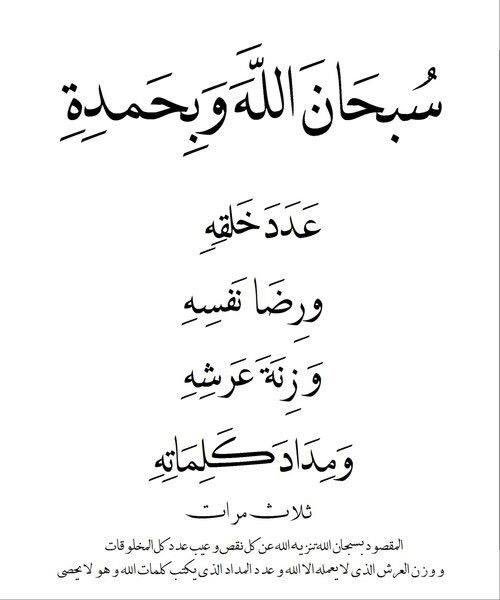 سُبحَانَ اللَّهَ وَبِحَمدِةِ
عَدَدَ خَلقِهِ
ورِضَا نَفسِهِ
وَزِنَةَ عَرَشِهِ
وَمِدَادَ كَلِمَاتِهِ
ثلاث مرات
المقصود بسبحان الله تنزيه الله عن كل نقص وعيب عدد كل المخلوقات
و وزن العرش الذي لا يعمله الا الله و عدد المداد الذي يكتب كلمات الله و هو لا يحصى